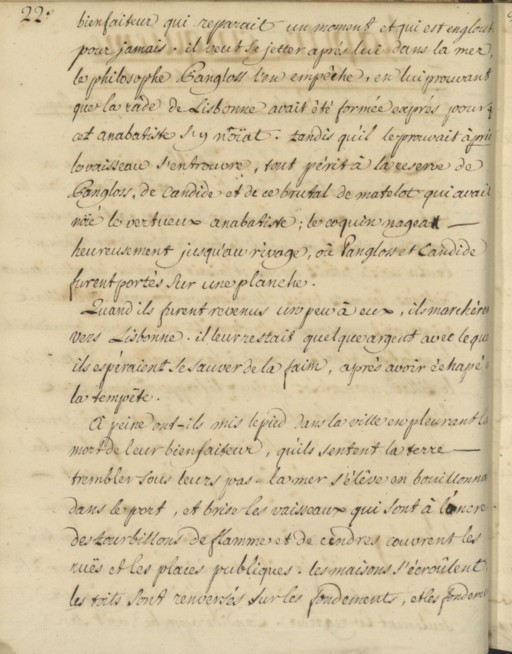 22.
bienfaiteur qui reparait un moment et qui est englouti
pour jamais. il veut se jetter après lui dans la mer,
le philosophe Pangloss l'en empêche, en lui prouvant
que la râde de Lisbonne avait été formée exprès pour q
cet anabatiste s'y noïat. tandis qu'il le prouvait à priori
le vaisseau s'entrouvre, tout périt à la reserve de
Pangloss, de Candide et de ce brutal de matelot qui avait
noïé le vertueux anabatiste; le coquin nagea —
heureusement jusqu'au rivage, où Pangloss et Candide
furent portés sur une planche.
Quand ils furent revenus un peu à eux, ils marchèren
vers Lisbonne. il leur restait quelque argent avec lequel
ils espéraient se sauver de la faim, après avoir échapé à
la tempête.
A peine ont-ils mis le pied dans la ville en pleurant la
mort de leur bienfaiteur, qu'ils sentent la terre —
trembler sous leurs pas. la mer s'élève en bouillonna
dans le port, et brise les vaisseaux qui sont à l'ancre.
des tourbillons de flamme et de cendres couvrent les
ruës et les places publiques. les maisons s'écroûlent
les toits sont renversés sur les fondements, et les fondeme